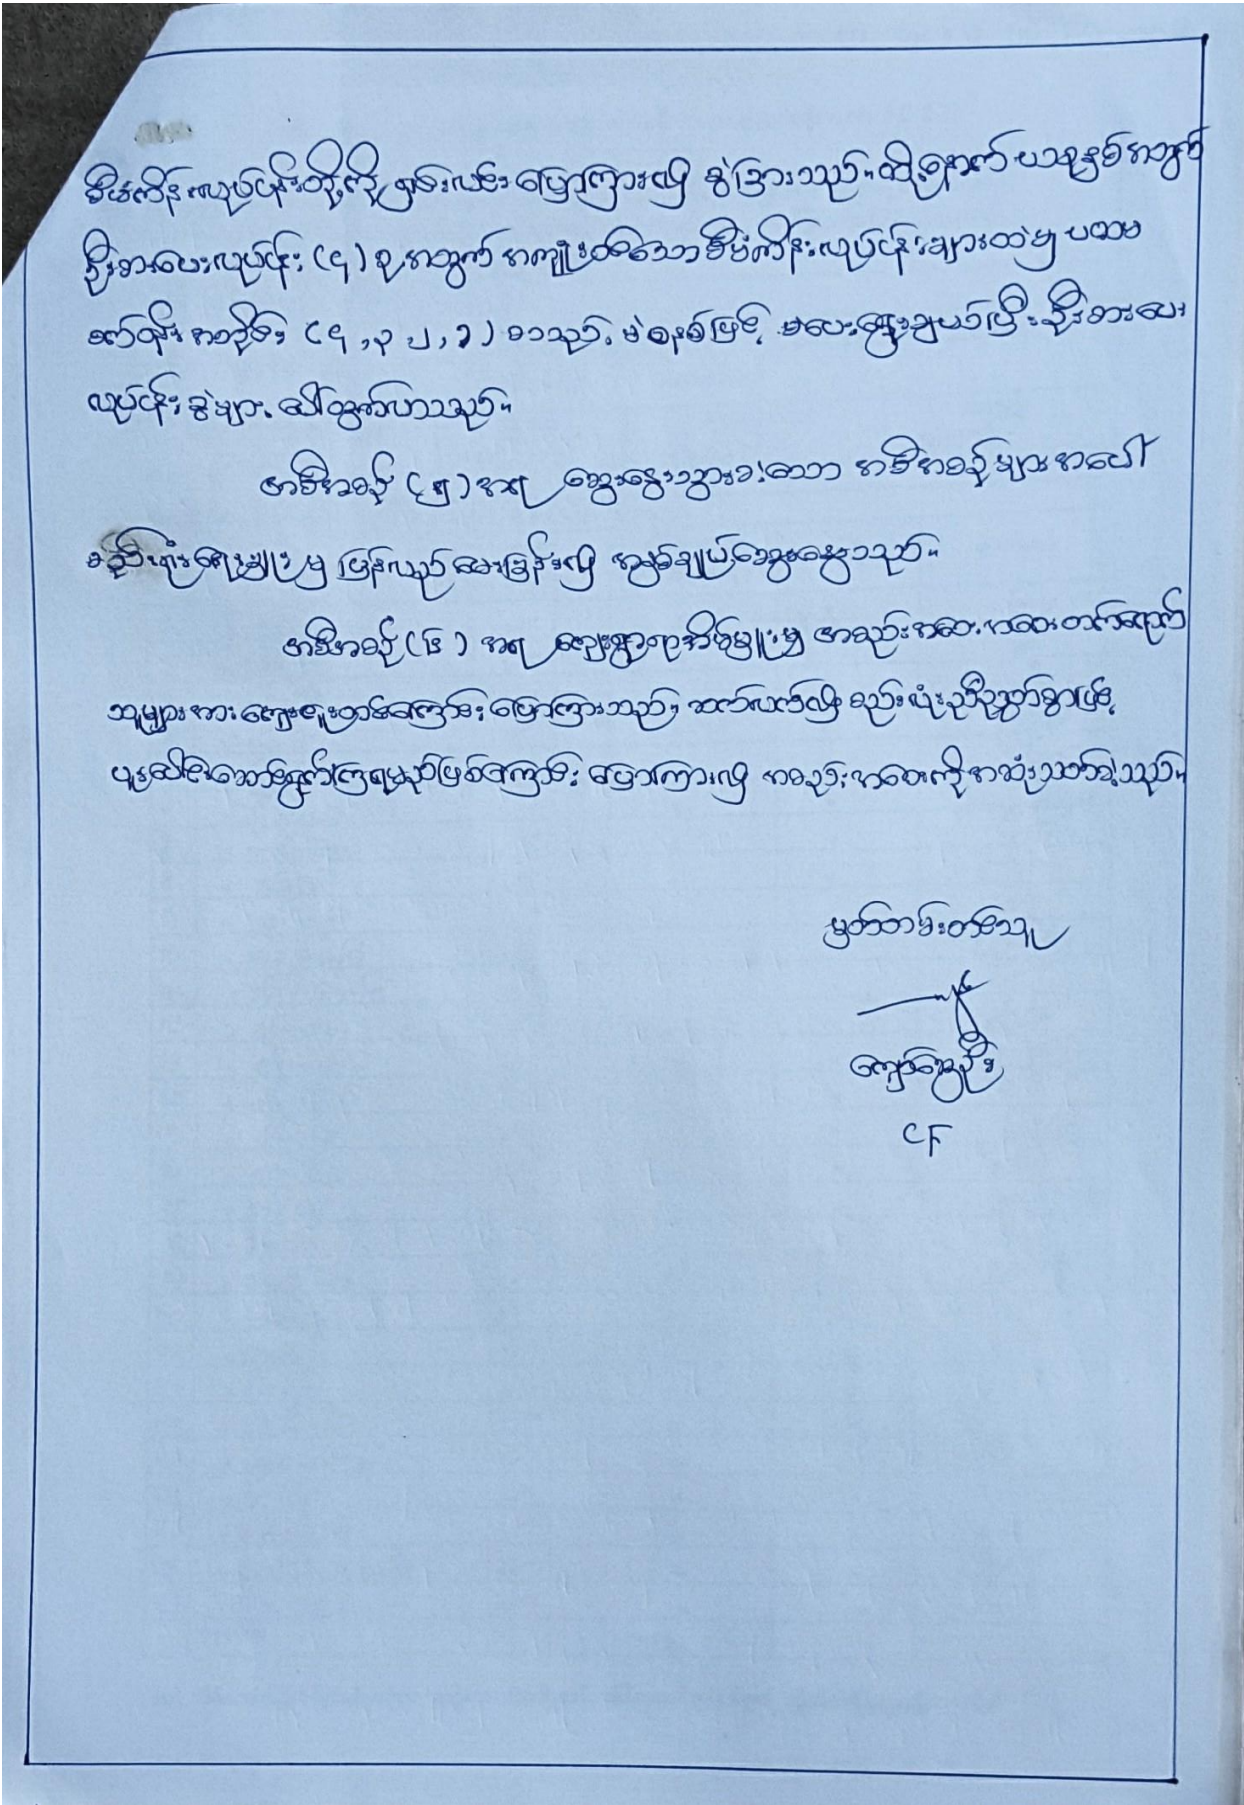 စီမံကိန်းလုပ်ငန်းတို့ကို ရှင်းလင်းပြောကြား၍ ခွဲခြားသည်။ ထို့နောက် ယခုနှစ်အတွက်
ဦးစားပေးလုပ်ငန်း (၄) ခုအတွက် အကျုံးဝင်သောစီမံကိန်းလုပ်ငန်းများထဲမှ ပထမ
စက်ဝန်းအတိုင်း (၄, ၃, ၂, ၁) စသည့် မဲစနစ်ဖြင့် မဲပေးရွေးချယ်ပြီး ဦးစားပေး
လုပ်ငန်းခွဲများ ပေါ်ထွက်လာသည်။
အစီအစဉ် (၅) အရ ဆွေးနွေးသွားခဲ့သော အစီအစဉ်များအပေါ်
စည်းရုံးရေးမှူးမှ ပြန်လည်မေးမြန်း၍ အနှစ်ချုပ်ဆွေးနွေးသည်။
အစီအစဉ် (၆) အရ ကျေးရွာရာအိမ်မှူးမှ အစည်းအဝေးအဝေးတက်ရောက်
သူများအား ကျေးဇူးတင်ကြောင်း ပြောကြားသည်။ ဆက်လက်၍ စည်းလုံးညီညွတ်စွာဖြင့်
ပူးပေါင်းဆောင်ရွက်ကြရမည်ဖြစ်ကြောင်း ပြောကြား၍ အစည်းအဝေးကိုအဆုံးသတ်ခဲ့သည်။
မှတ်တမ်းတင်သူ
ကျော်ဆွေဦး
CF